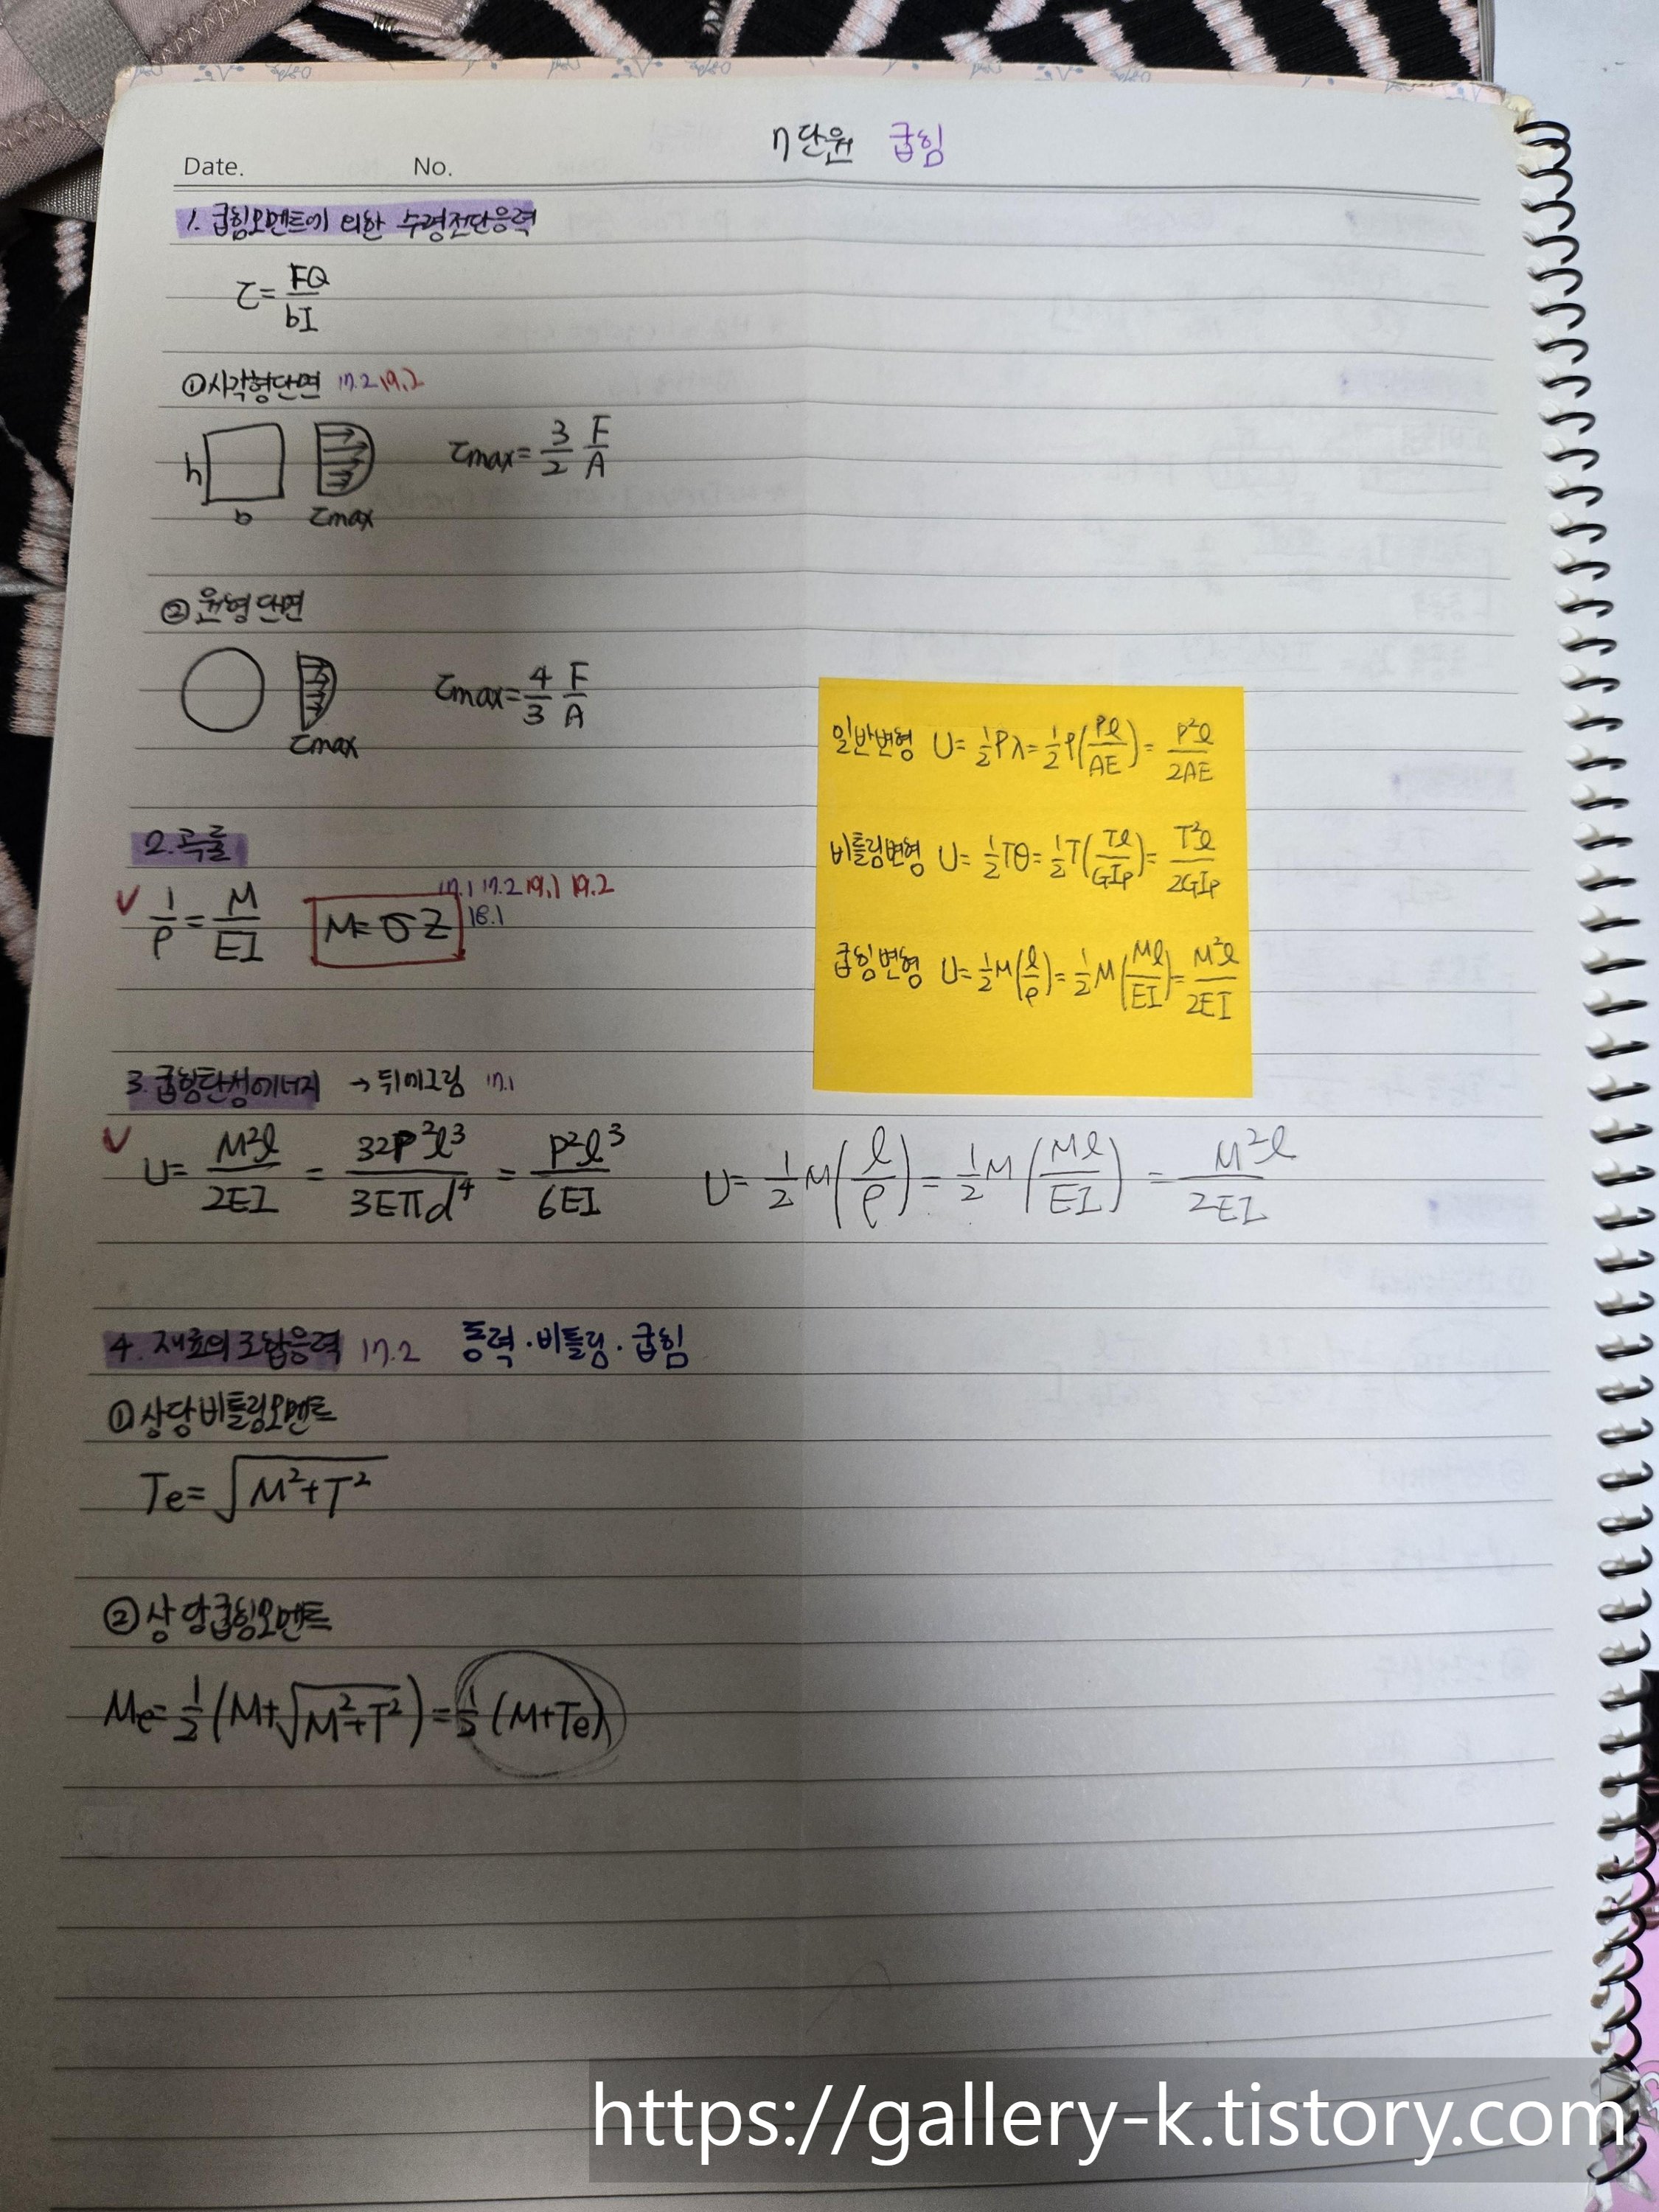 7단원 굽힘
Date. No.
1. 굽힘모멘트에 의한 수평전단응력
τ = FQ / bI
①사각형단면 17.2 19.2
h b τmax
τmax = 3/2 F/A
②원형단면
τmax
τmax = 4/3 F/A
일반변형 U = 1/2 Pλ = 1/2 P(Pℓ/AE) = P²ℓ/2AE
비틀림변형 U = 1/2 Tθ = 1/2 T(Tℓ/GIp) = T²ℓ/2GIp
굽힘변형 U = 1/2 M(ℓ/ρ) = 1/2 M(Mℓ/EI) = M²ℓ/2EI
2. 곡률
✓ 1/ρ = M/EI M = σZ 17.1 17.2 19.1 19.2
18.1
3. 굽힘탄성에너지 → 뒤에그림 17.1
✓ U = M²ℓ/2EI = 32P²ℓ³/3Eπd⁴ = P²ℓ³/6EI U = 1/2 M(ℓ/ρ) = 1/2 M(Mℓ/EI) = M²ℓ/2EI
4. 재료의 조합응력 17.2 동력·비틀림·굽힘
①상당비틀림모멘트
Te = √(M²+T²)
②상당굽힘모멘트
Me = 1/2 (M+√(M²+T²)) = 1/2 (M+Te)
https://gallery-k.tistory.com